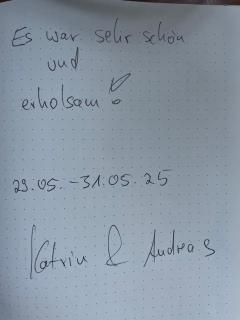 Es war sehr schön
und
erholsam!
29.05.-31.05.25
Katrin & Andreas